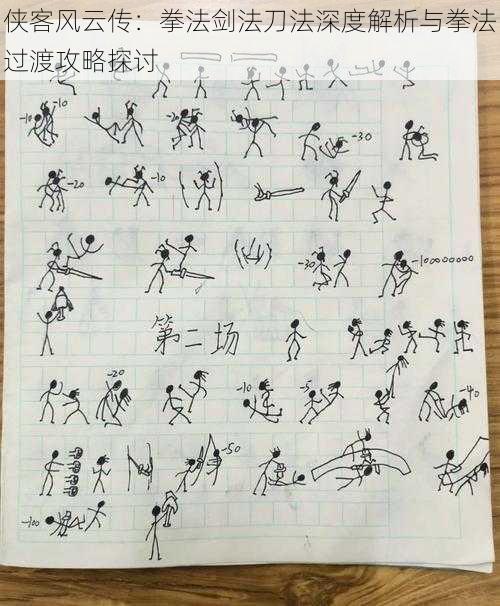 侠客风云传：拳法剑法刀法深度解析与拳法
过渡攻略探讨
-10 -10 -20 -30
-20 -10
-30 -100000000
第二场
-20 -10 -5 -40
-50
-100